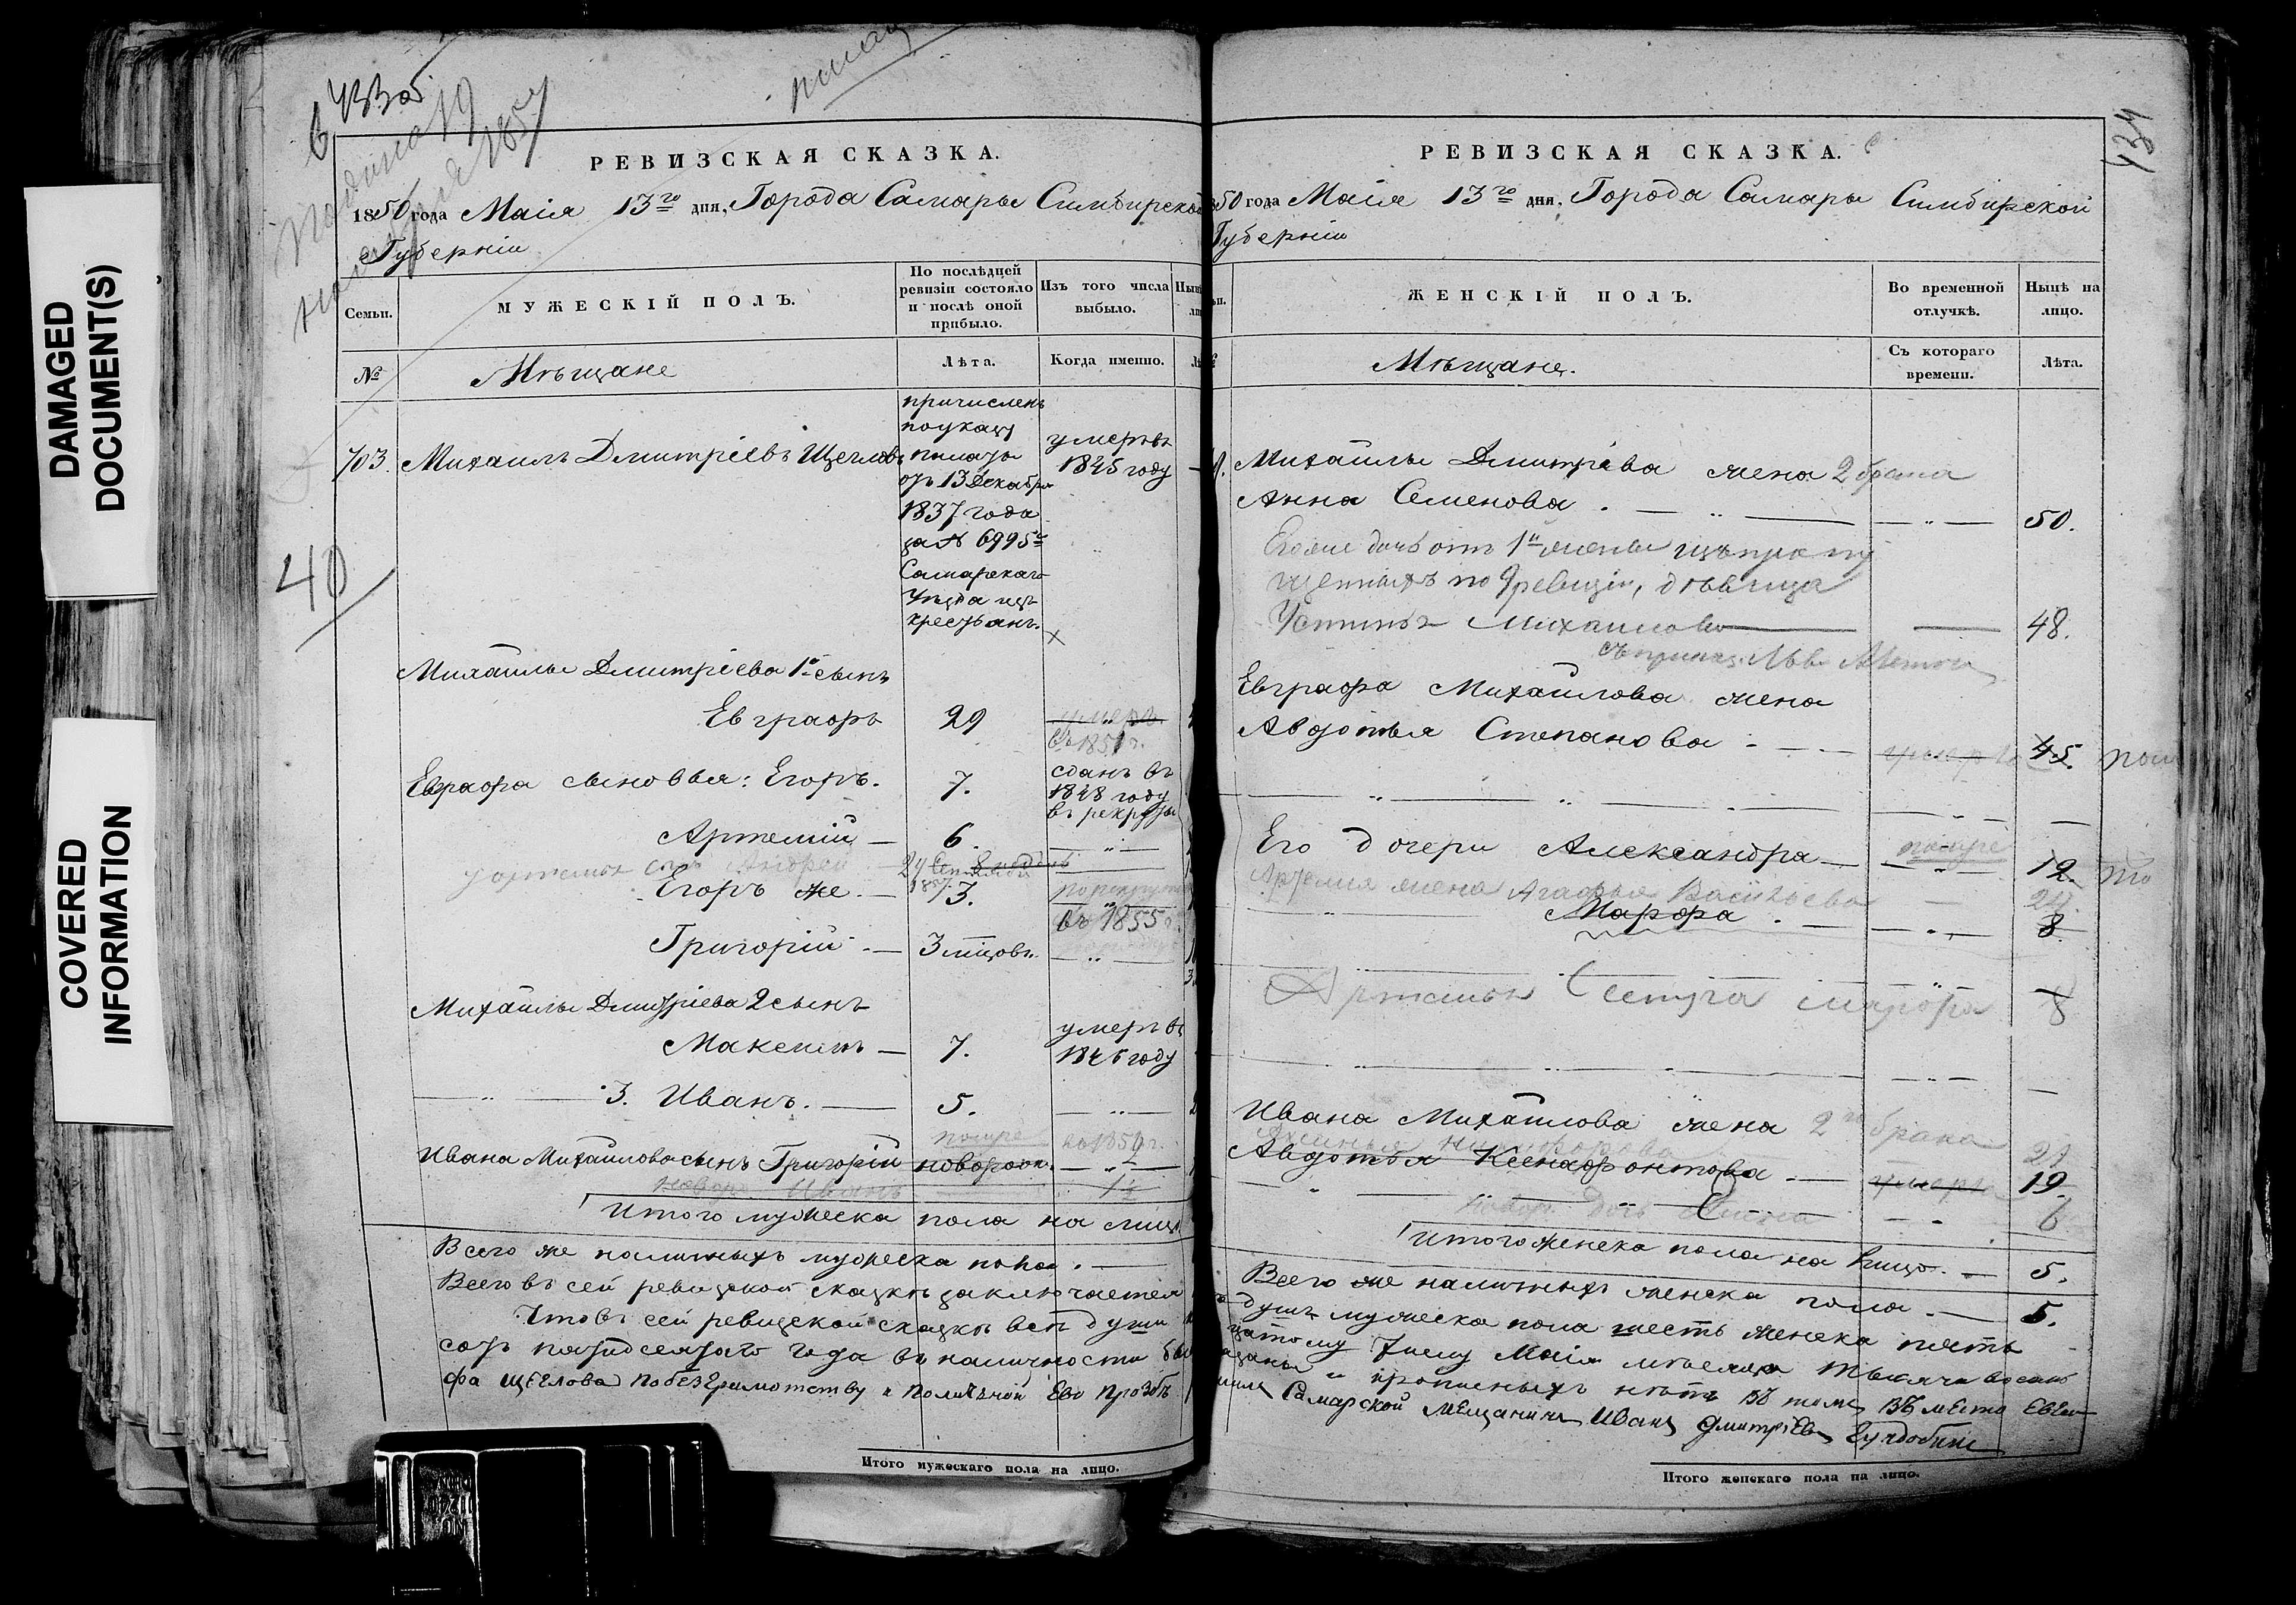 DAMAGED
DOCUMENT(S)
COVERED
INFORMATION
40
1857
РЕВИЗСКАЯ СКАЗКА.
1850 года Маія 13го дня, Города Самары Симбирской
Губерніи
Семьи.
МУЖЕСКІЙ ПОЛЪ.
По послѣдней
ревизіи состояло
и послѣ оной
прибыло.
Изъ того числа
выбыло.
№
Мѣщане
Лѣта.
Когда именно.
703. Михаилъ Дмитріевъ Щегловъ
причисленъ
по указу
палаты
отъ 13 Декабря
1837 года
за № 6995
Самарскаго
Уѣзда изъ
крестьянъ.
умеръ въ
1845 году
Михайлы Дмитріева 1й сынъ
Евграфъ 29
умеръ
въ 1851 г.
Евграфа сыновья: Егоръ. 7.
сданъ въ
1848 году
въ рекруты
Артемій — 6.
Андрей
Егоръ же. — 3.
въ 1855 г.
Григорій — 3 мцовъ.
Михайлы Дмитріева 2 сынъ
Максимъ — 7.
умеръ въ
1846 году
3. Иванъ. — 5.
Ивана Михайлова сынъ Григорій новорож.
Иванъ
Итого мужеска пола на лицо
Всего же наличныхъ мужеска пола . —
Всего въ сей ревизской сказкѣ заключается
Что въ сей ревизской сказкѣ всѣ души
сотъ пятидесятаго года въ наличности
фа Щеглова по безграмотству и поличной Ево прозбѣ
Итого мужескаго пола на лицо.
134
РЕВИЗСКАЯ СКАЗКА.
50 года Маія 13го дня, Города Самары Симбирской
Губерніи
ЖЕНСКІЙ ПОЛЪ.
Во временной
отлучкѣ.
Нынѣ на
лицо.
Мѣщане.
Съ котораго
времени.
Лѣта.
Михайлы Дмитріева жена 2 брака
Анна Семенова . — 50.
Его же дочь отъ 1й жены изъ
по 9 ревизіи, дѣвица
Михайлова 48.
Евграфа Михайлова жена
Авдотья Степанова — 45.
Его дочери Александра — 12.
Артемія жена Агафья Васильева 24.
Марфа . — 8.
Артемья Сестра Марфа 8
Ивана Михайлова жена 2го брака
21
Авдотья Ксенофонтова . — 19.
дочь 6
Итого женска пола на лицо. — 5.
Всего же наличныхъ женска пола — 5.
душъ мужеска пола шесть женска пять
числу Маія мѣсяца тысяча восемь
и прописныхъ нѣтъ въ томъ въ место Евгра
Самарской мещанинъ Иванъ Дмитріевъ
Итого женскаго пола на лицо.